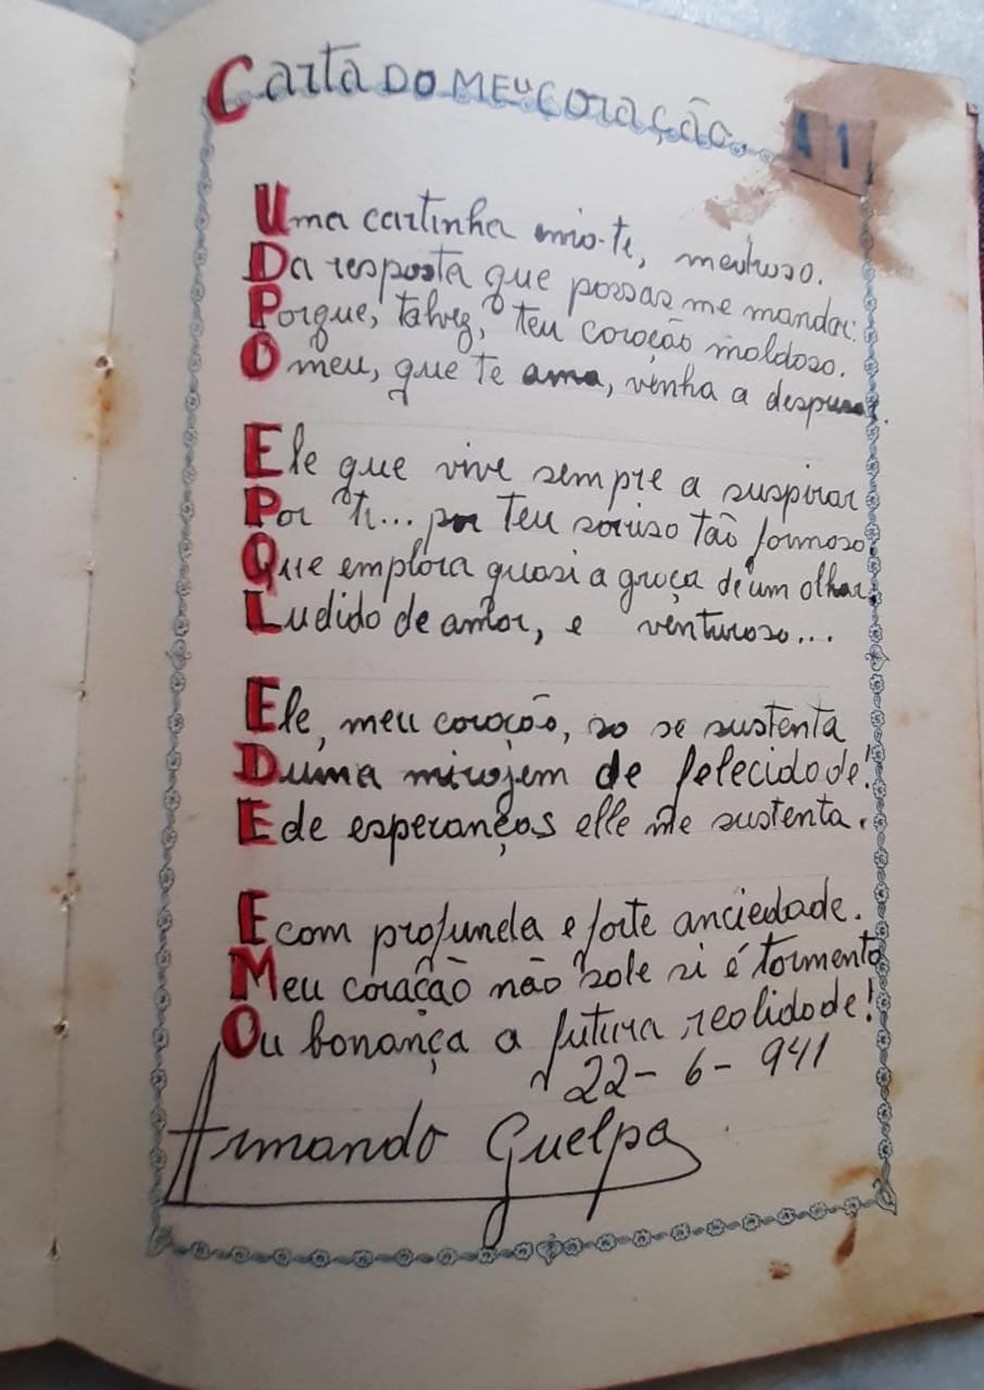 Carta DO MEU CORAÇÃO.
41
Uma cartinha envio-te, medroso.
Da resposta que possas me mandar:
Porque, talvez, teu coração maldoso.
O meu, que te ama, venha a desprezar.
Ele que vive sempre a suspirar
Por ti... por teu sorriso tão formoso
Que emplora quasi a graça de um olhar,
Ludido de amor, e venturoso...
Ele, meu coração, so se sustenta
Duma mirajem de felecidade!
E de esperanças elle me sustenta.
E com profunda e forte anciedade.
Meu coração não sabe si é tormento
Ou bonança a futura realidade!
22-6-941
Armando Guelpa